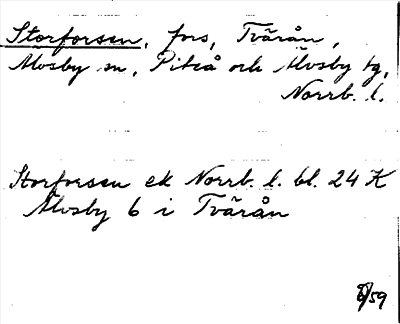 Storforsen, fors, Tvärån,
Älvsby sn, Piteå och Älvsby tg,
Norrb. l.
Storforsen ek Norrb. l. bl. 24 K
Älvsby 6 i Tvärån
/59